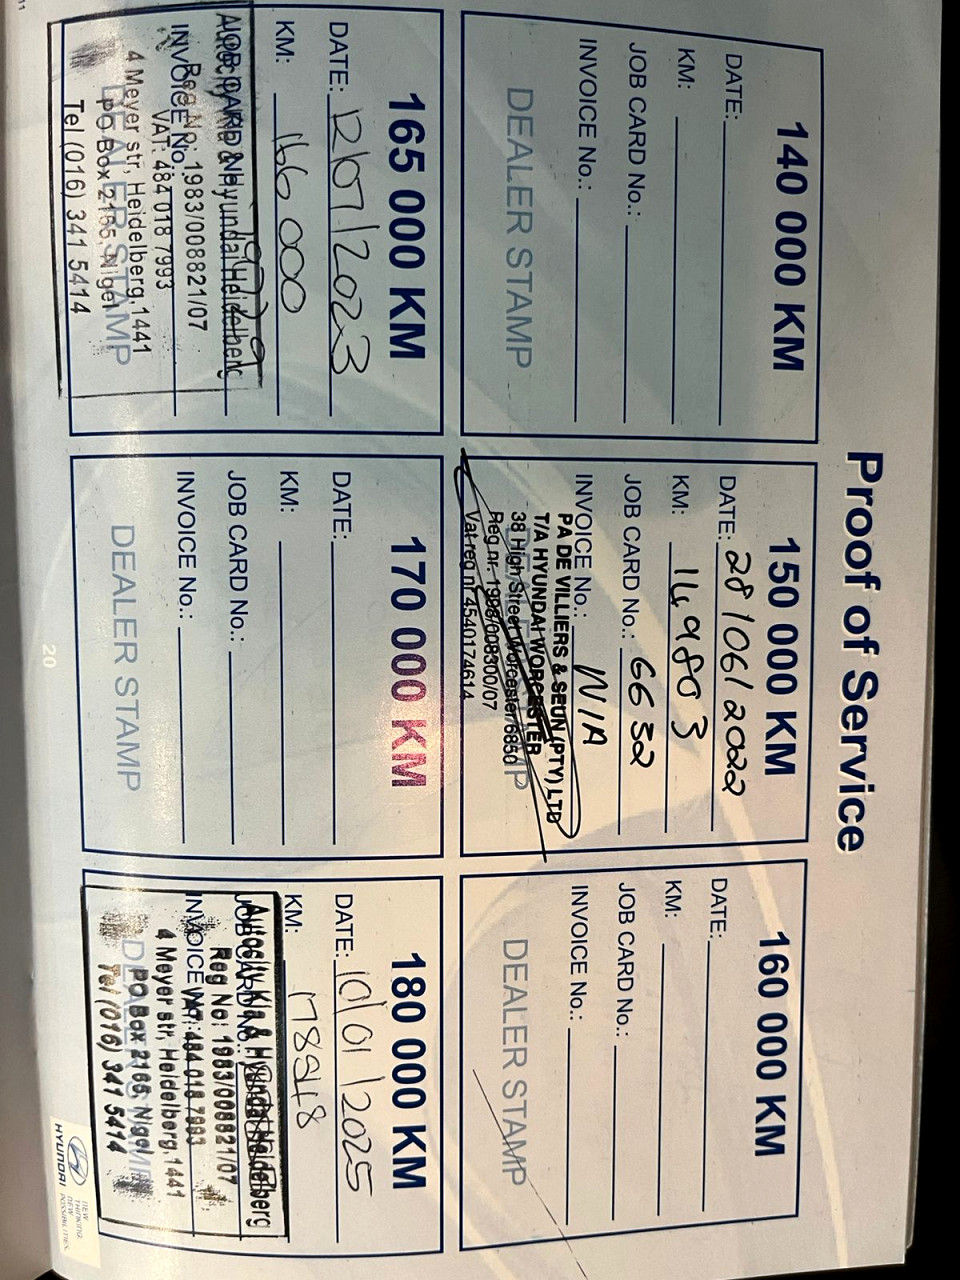 Proof of Service
140 000 KM
DATE:
KM:
JOB CARD No.:
INVOICE No.:
DEALER STAMP
150 000 KM
DATE: 28/06/2022
KM: 149803
JOB CARD No.: 6632
INVOICE No.: N/A
DEALER STAMP
PA DE VILLIERS & SEUN (PTY) LTD
T/A HYUNDAI WORCESTER
38 High Street Worcester 6850
Reg nr. 1998/008300/07
Vat reg nr 4540174614
160 000 KM
DATE:
KM:
JOB CARD No.:
INVOICE No.:
DEALER STAMP
165 000 KM
DATE: 12/07/2023
KM: 166 000
JOB CARD No.:
Hyundai Heidelberg
INVOICE No.:
Reg Nr: 1983/008821/07
VAT: 484 018 7993
4 Meyer str, Heidelberg, 1441
DEALER STAMP
PO Box 2165, Nigel
Tel (016) 341 5414
170 000 KM
DATE:
KM:
JOB CARD No.:
INVOICE No.:
DEALER STAMP
180 000 KM
DATE: 10/01/2025
KM: 178848
JOB CARD No.:
Autocity Kia & Hyundai Heidelberg
Reg No: 1983/008821/07
INVOICE No.:
VAT: 484 018 7993
4 Meyer str, Heidelberg, 1441
DEALER STAMP
PO Box 2165, Nigel
Tel (016) 341 5414
20
HYUNDAI
NEW
THINKING.
NEW
POSSIBILITIES.